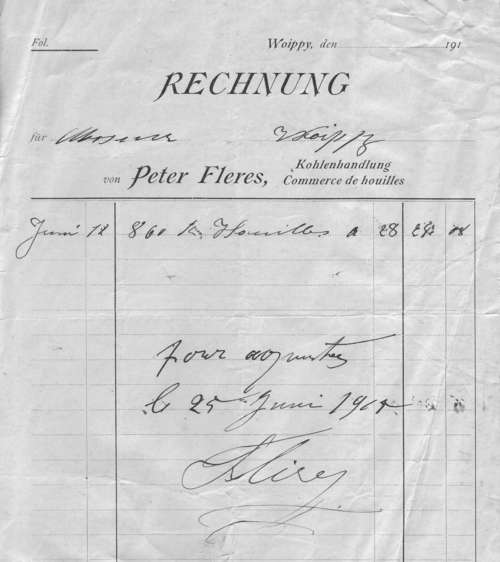 Fol. Woippy, den 191
RECHNUNG
für Woippy
von Peter Fleres, Kohlenhandlung
Commerce de houilles
Juni 12 860 Houilles a 28
pour acquit
le 25 Juni 191
Fleres